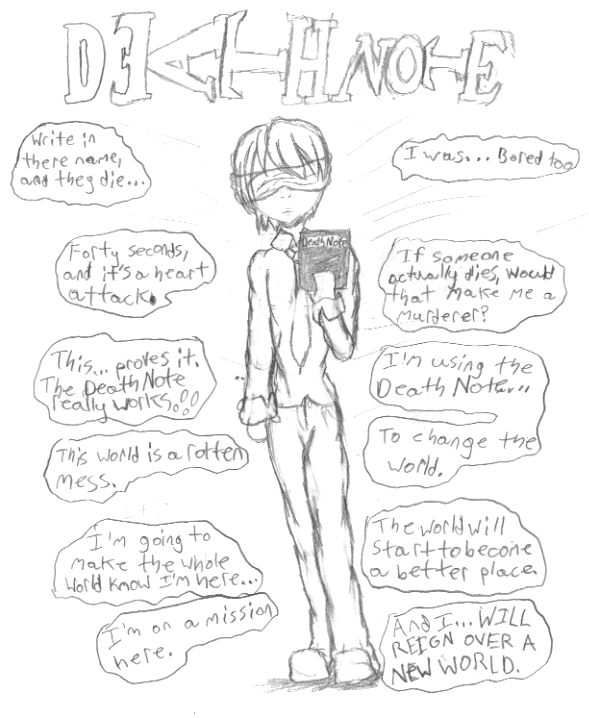 DEATH NOTE
Write in
there name,
and they die...
Forty seconds,
and it's a heart
attack.
This... proves it.
The Death Note
really works!!!
This world is a rotten
mess.
I'm going to
make the whole
world know I'm here...
I'm on a mission
here.
Death Note
I was... Bored too
If someone
actually dies, would
that make me a
murderer?
I'm using the
Death Note...
To change the
world.
The world will
start to become
a better place.
And I... WILL
REIGN OVER A
NEW WORLD.